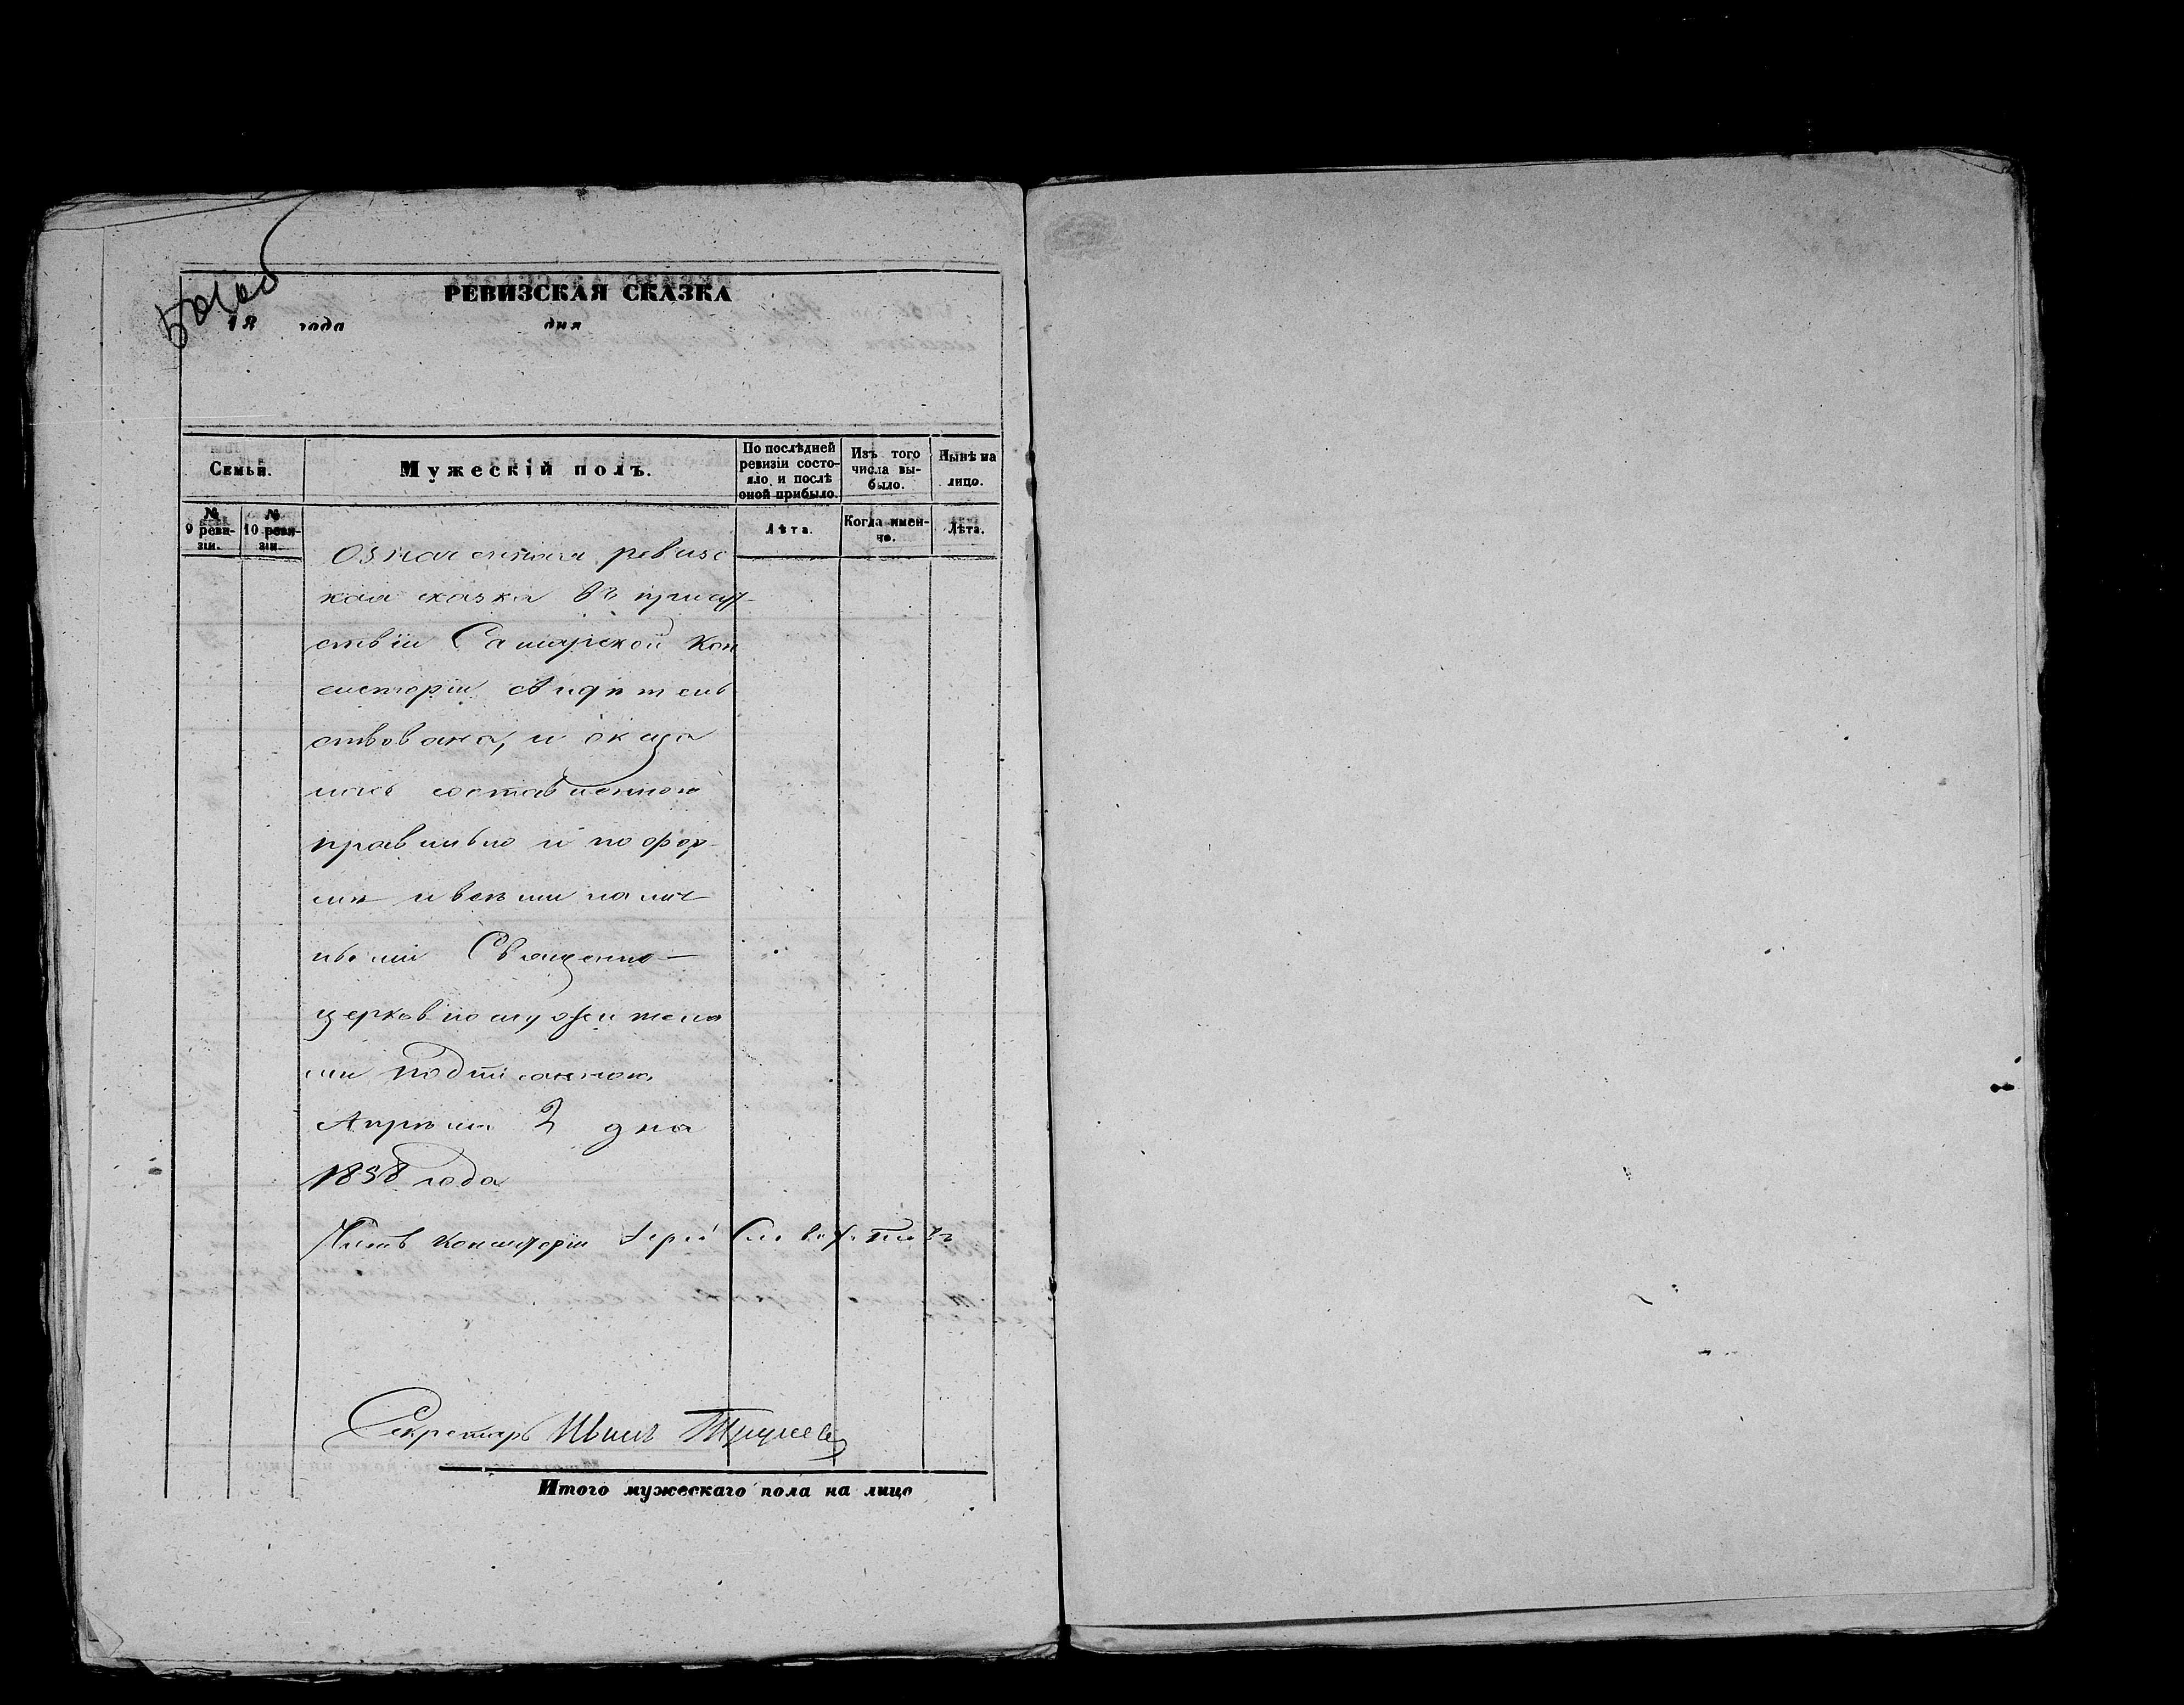 РЕВИЗСКАЯ СКАЗКА
18 года дня
Семьи.
Мужескій полъ.
По послѣдней ревизіи состояло и послѣ оной прибыло.
Изъ того числа выбыло.
Нынѣ на лицо.
№ 9 ревизіи.
№ 10 ревизіи.
Лѣта.
Когда именно.
Лѣта.
Означенная ревизс
кая сказка въ присут-
ствіи Самарской Кон
систоріи свидѣтель
ствована, и оказа
лась составленною
правильно и по фор-
мѣ и всѣми налич
ными Священно-
церковнослужителя
ми подписанною
Апрѣля 2 дня
1858 года
Членъ Консисторіи Іерей
Секретарь Иванъ
Итого мужескаго пола на лицо